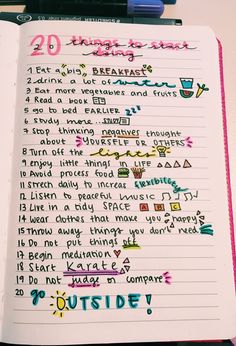 20 things to start
doing
1 Eat a big BREAKFAST
2 drink a lot of water
3 Eat more vegetables and fruits
4 Read a book
5 go to bed EARLIER zzz
6 study more...
7 Stop thinking negatives thought
about YOURSELF OR OTHERS
8 Turn off the lights
9 enjoy little things in life
10 Avoid process food
11 strech daily to increase flexibility
12 Listen to peaceful MUSIC
13 Live in a tidy SPACE A B C
14 wear clothes that make you happy
15 Throw away things you don't need
16 Do not put things off
17 Begin meditation
18 Start Karate
19 Do not judge or compare
20 go OUTSIDE!